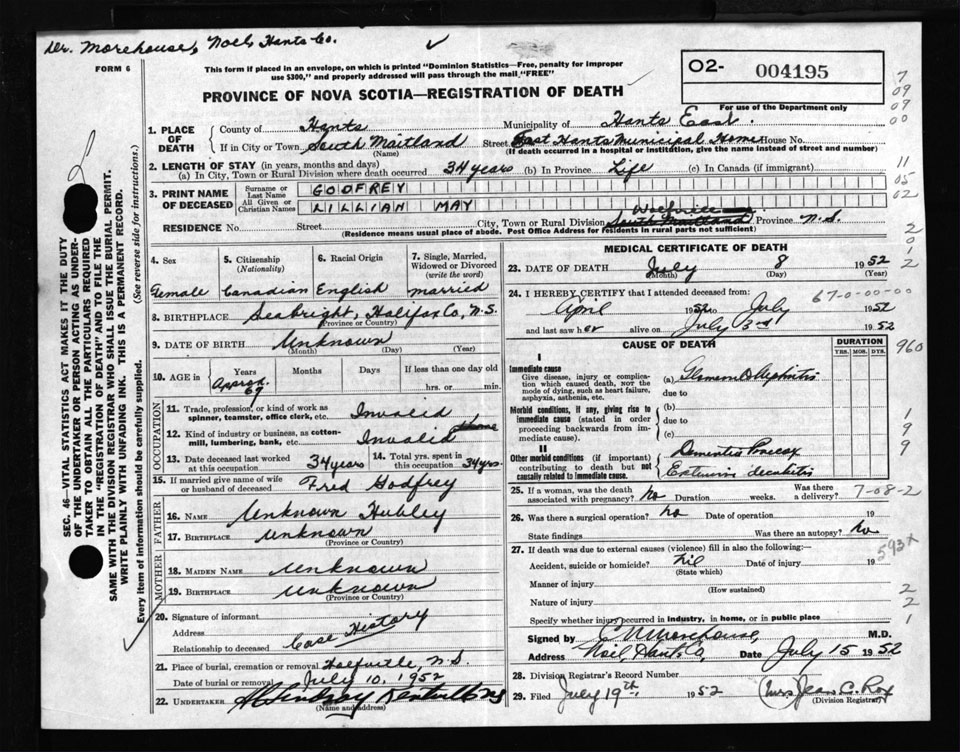 Dr. Morehouse, Noel, Hants Co. ✓
FORM 6
This form if placed in an envelope, on which is printed "Dominion Statistics—Free, penalty for improper
use $300," and properly addressed will pass through the mail "FREE"
02- 004195
PROVINCE OF NOVA SCOTIA—REGISTRATION OF DEATH
For use of the Department only
7
09
07
00
1. PLACE OF DEATH
County of Hants Municipality of Hants East.
If in City or Town South Maitland Street East Hants Municipal Home House No.
(Name) (If death occurred in a hospital or institution, give the name instead of street and number)
2. LENGTH OF STAY (in years, months and days)
(a) In City, Town or Rural Division where death occurred 34 years (b) In Province Life (c) In Canada (if immigrant)
11
05
02
3. PRINT NAME OF DECEASED
Surname or Last Name GODFREY
All Given or Christian Names LILLIAN MAY
Wolfville
RESIDENCE No. Street City, Town or Rural Division South Maitland Province N.S.
(Residence means usual place of abode. Post Office Address for Residents in rural parts not sufficient)
2
0
9
2
4. Sex Female
5. Citizenship (Nationality) Canadian
6. Racial Origin English
7. Single, Married, Widowed or Divorced (write the word) married
8. BIRTHPLACE Seabright, Halifax Co, N.S.
(Province or Country)
9. DATE OF BIRTH Unknown
(Month) (Day) (Year)
10. AGE in Years Months Days If less than one day old
Approx. 67 hrs. or min.
OCCUPATION
11. Trade, profession, or kind of work as spinner, teamster, office clerk, etc. Invalid
12. Kind of industry or business, as cotton-mill, lumbering, bank, etc. Invalid Home
13. Date deceased last worked at this occupation 34 years
14. Total yrs. spent in this occupation 34 yrs.
15. If married give name of wife or husband of deceased Fred Godfrey
FATHER
16. NAME Unknown Hubley
17. BIRTHPLACE Unknown
(Province or Country)
MOTHER
18. MAIDEN NAME Unknown
19. BIRTHPLACE Unknown
(Province or Country)
20. Signature of informant
Address
Relationship to deceased Case History
21. Place of burial, cremation or removal Wolfville, N.S.
Date of burial or removal July 10, 1952
22. UNDERTAKER
(Name and address)
MEDICAL CERTIFICATE OF DEATH
23. DATE OF DEATH July 8 1952
(Month) (Day) (Year)
24. I HEREBY CERTIFY that I attended deceased from: 67-0-00-00
April 1952 to July 1952
and last saw her alive on July 3rd 1952
CAUSE OF DEATH
DURATION
YRS. MOS. DYS.
960
I
Immediate cause
Give disease, injury or complication which caused death, not the mode of dying, such as heart failure, asphyxia, asthenia, etc.
(a)
due to
Morbid conditions, if any, giving rise to immediate cause (stated in order proceeding backwards from immediate cause).
(b)
due to
(c)
9
9
II
Other morbid conditions (if important) contributing to death but not causally related to immediate cause.
Dementia Praecox
decubitis
25. If a woman, was the death associated with pregnancy? no Duration weeks. Was there a delivery? 7-08-2
26. Was there a surgical operation? no Date of operation 19
State findings Was there an autopsy? no
27. If death was due to external causes (violence) fill in also the following:—
593x
Accident, suicide or homicide? Nil Date of injury 19
(State which)
Manner of injury
(How sustained)
2
Nature of injury
2
Specify whether injury occurred in industry, in home, or in public place
1
Signed by C N Morehouse, M.D.
Address Noel, Hants Co, Date July 15 1952
28. Division Registrar's Record Number
29. Filed July 19th. 1952 (Mrs) Jean C. Roy
(Division Registrar)
SEC. 46—VITAL STATISTICS ACT MAKES IT THE DUTY
OF THE UNDERTAKER OR PERSON ACTING AS UNDER-
TAKER TO OBTAIN ALL THE PARTICULARS REQUIRED
IN THE "REGISTRATION OF DEATH" AND TO FILE THE
SAME WITH THE DIVISION REGISTRAR WHO SHALL ISSUE THE BURIAL PERMIT.
WRITE PLAINLY WITH UNFADING INK. THIS IS A PERMANENT RECORD.
Every item of information should be carefully supplied. (See reverse side for instructions.)